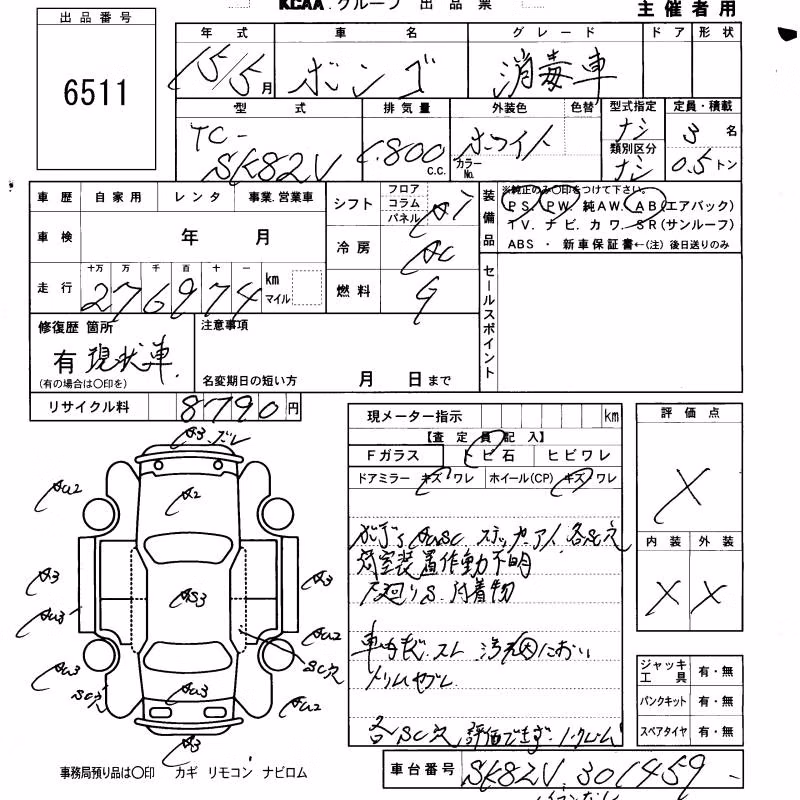 KCAA.グループ 出品票
主催者用
出品番号
6511
年式 車名 グレード ドア 形状
15/5月 ボンゴ 消毒車
型式 排気量 外装色 色替 型式指定 定員・積載
TC-SK82V 1.800 c.c. ホワイト カラーNo. ナシ 3名
類別区分
ナシ 0.5トン
車歴 自家用 レンタ 事業.営業車
車検 年 月
走行 十万 万 千 百 十 一
276974 km マイル
シフト フロア コラム パネル AT
冷房 AC
燃料 G
装備品 ※純正のみ○印をつけて下さい。
PS. PW. 純AW. AB(エアバック)
TV. ナビ. カワ. SR(サンルーフ)
ABS ・ 新車保証書←(注) 後日送りのみ
セールスポイント
修復歴 箇所
有 現状車.
(有の場合は○印を)
注意事項
名変期日の短い方 月 日まで
リサイクル料 8790円
現メーター指示 km
【査定員記入】
Fガラス トビ石 ヒビワレ
ドアミラー キズ ワレ ホイール(CP) キズ ワレ
ボディ AUSC ステップ 各SC穴
荷室装置作動不明
下廻りS. 付着物
車内 スレ におい
各SC穴 評価できず.
評価点
X
内装 外装
X X
ジャッキ 工具 有・無
パンクキット 有・無
スペアタイヤ 有・無
A3 ズレ
AU2
A2
A3
AU3
AS3
A3
AU2
SC穴
AU3
SC穴
AU3
AU2
A3
事務局預り品は○印 カギ リモコン ナビロム
車台番号 SK82V-301459